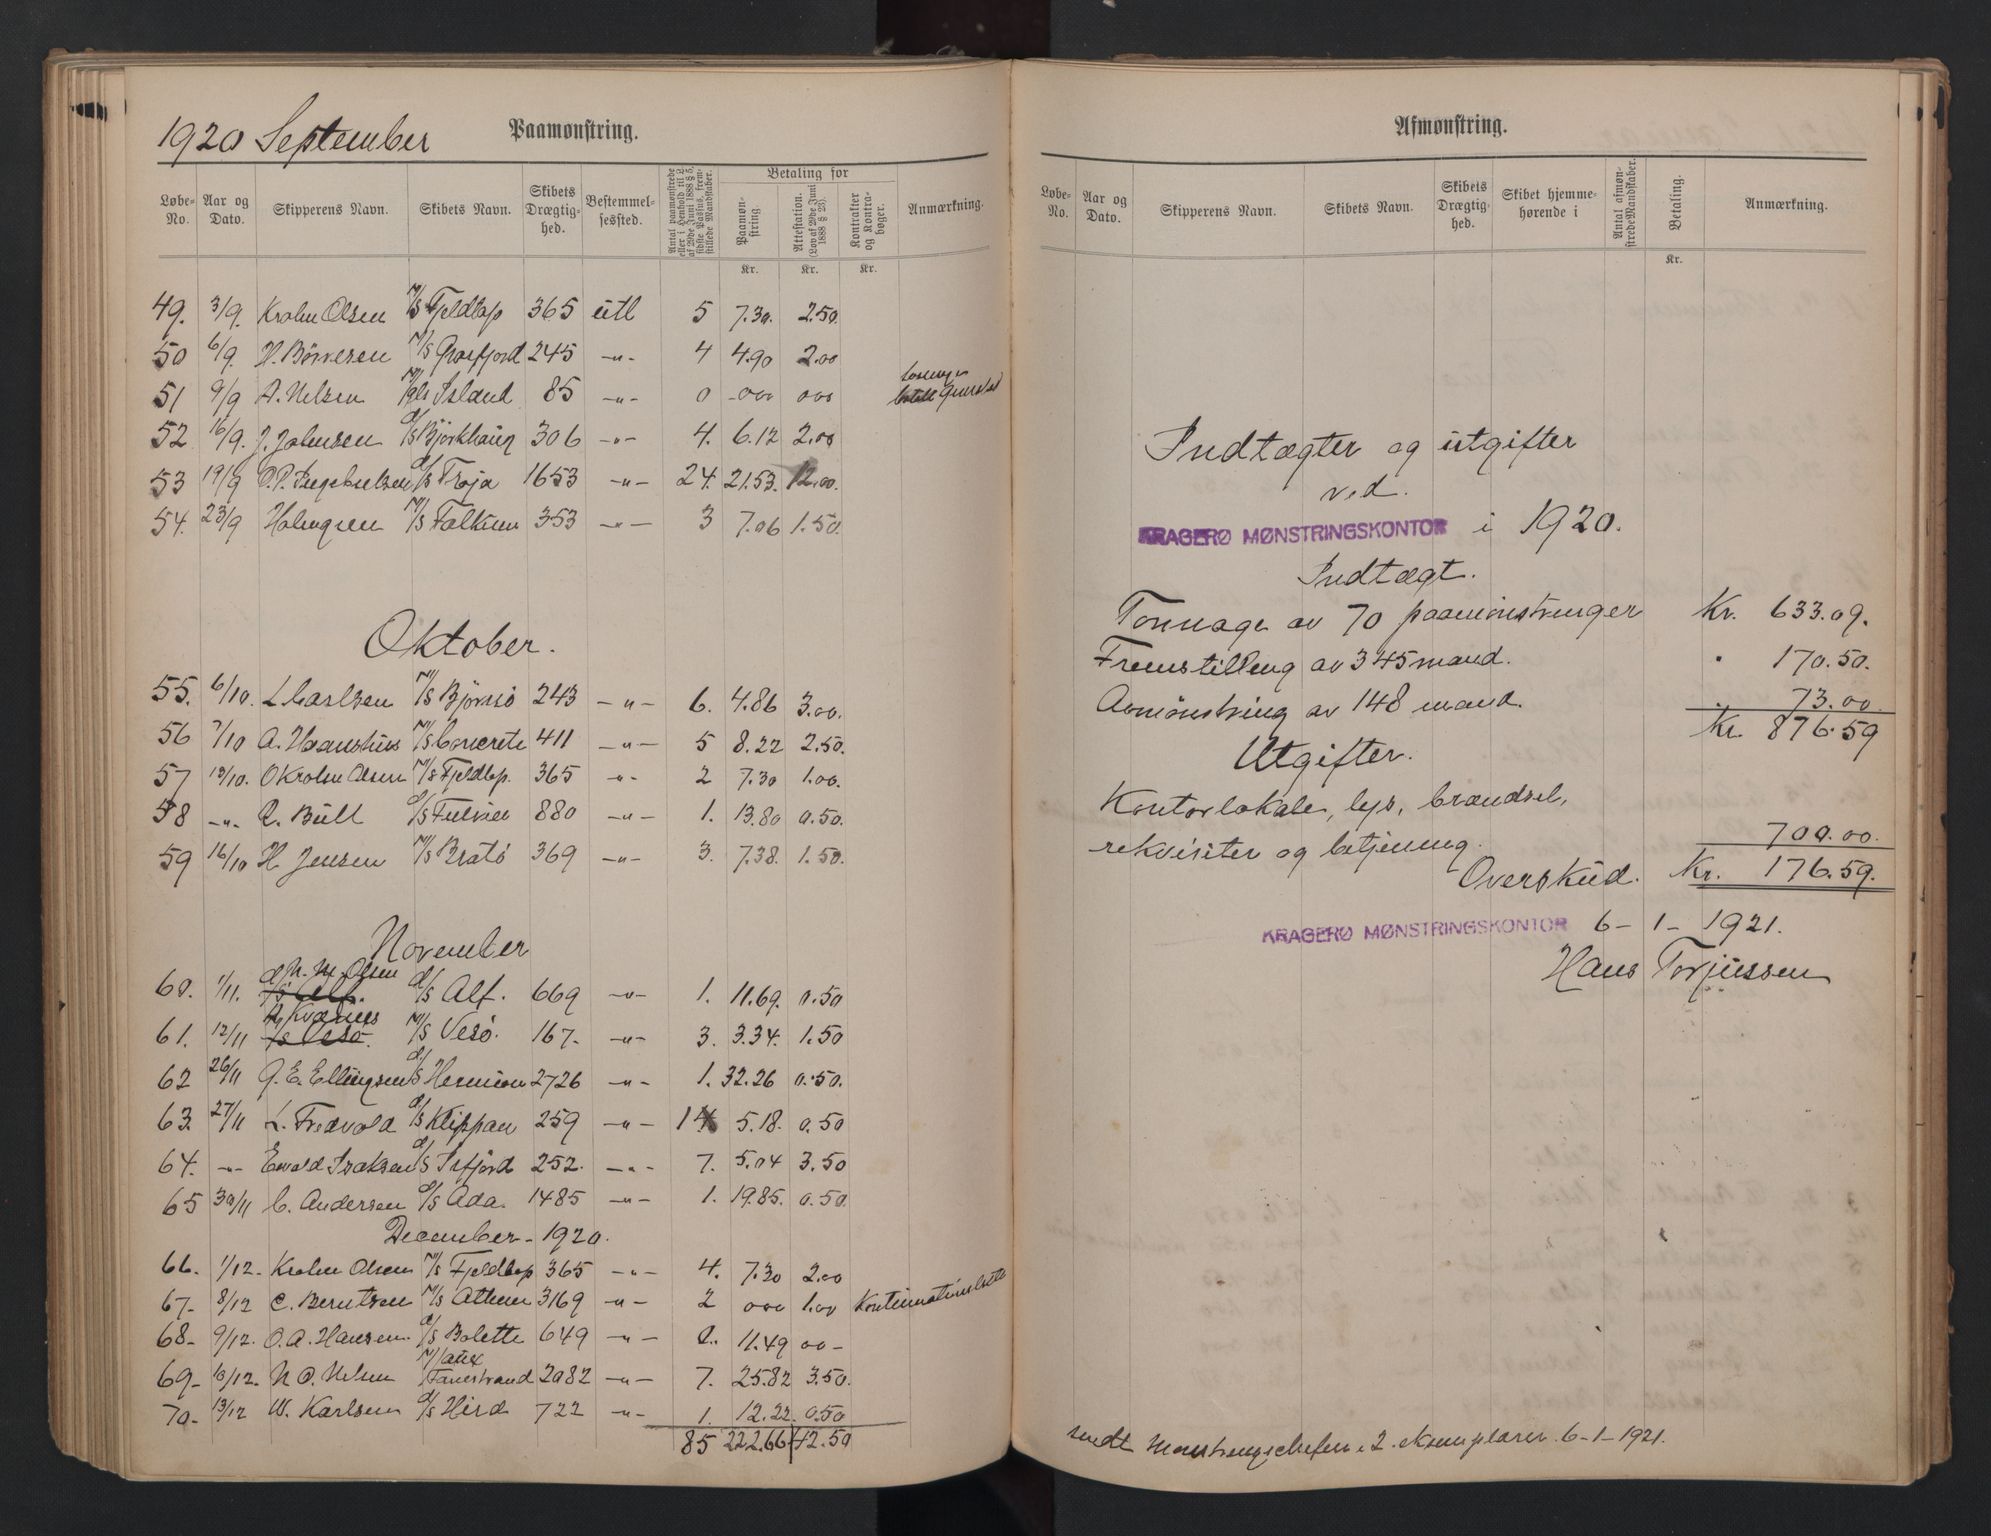 1920 September
Paamønstring.
Løbe-No.
Aar og Dato.
Skipperens Navn.
Skibets Navn.
Skibets Drægtighed.
Bestemmelsessted.
Antal paamønstrede eller i Henhold til L. af 29de Juni 1888 § 5, sidste Passus, fremstillede Mandskaber.
Betaling for
Paamønstring.
Attestation. (Lov af 29de Juni 1888 § 25).
Kontrakter og Kontrabøger.
Anmærkning.
Kr. Kr. Kr.
49. 3/9. Krohn Olsen M/S Fjeldtop 365 utl 5 7.30. 2.50.
50 6/9. H. Börresen M/S 245 -"- 4 4.90 2.00
51 9/9 A. Nelsen Island 85 -"- 0 -000 000
52 16/9. J. Johnsen d/s Björkhaug 306 -"- 4. 6.12 2.00
53 19/9 O.P. d/s Troja 1653 -"- 24. 21.53. 12.00.
54. 23/9 Holmgren M/S Falkum 353 -"- 3 7.06 1.50.
Oktober.
55. 6/10. L. Carlsen M/S Björnsö 243 -"- 6. 4.86 3.00.
56 7/10 A. M/S Concrete 411 -"- 5 8.22 2.50.
57 13/10. O Krohn Olsen M/S Fjeldtop. 365 -"- 2 7.30 1.00.
58 -"- R. Bull d/s 880 -"- 1. 13.80 0.50.
59 16/10 H. Jensen M/S Bratö 369 -"- 3. 7.38. 1.50.
November
60. 1/11. N. M. Olsen d/s Alf. 669 -"- 1. 11.69. 0.50
61. 12/11 M/S Vesö. 167- -"- 3. 3.34. 1.50
62 26/11 G. E. Ellingsen d/s Hermion 2726 -"- 1. 32.26 0.50.
63. 27/11 L. Fredvold d/s Klippan 259 -"- 1 5.18. 0.50
64. -"- Ewald Isaksen d/s Isfjord 252. -"- 7. 5.04 3.50
65 30/11 C. Andersen d/s Ada. 1485 -"- 1. 19.85. 0.50.
December - 1920.
66. 1/12- Krohn Olsen M/S Fjeldtop 365 -"- 4. 7.30 2.00
67- 8/12 C. Berntsen M/S Athene 3169 -"- 2 000 1.00
68- 9/12. O. A. Hansen d/s Bolette 649 -"- 11.49 00-
69- 10/12. N. O. Nelsen M/aux Fanestrand 2082 -"- 7. 25.82 3.50.
70- 13/12 W. Karlsen d/s Hird 722 -"- 1. 12.22. 0.50
85 222.66 42.50
Afmønstring.
Løbe-No.
Aar og Dato.
Skipperens Navn.
Skibets Navn.
Skibets Drægtighed.
Skibet hjemmehørende i
Antal afmønstrede Mandskaber.
Betaling.
Anmærkning.
Kr.
Indtægter og utgifter
ved.
KRAGERØ MØNSTRINGSKONTOR i 1920.
Indtægt.
Tonnage av 70 paamönstringer Kr. 633.09.
Fremstilling av 345 mand. " 170.50.
Avmönstring av 148 mand. " 73.00.
Kr. 876.59
Utgifter.
Kontorlokale, lys, brændsel,
rekvisiter og betjening. 700.00.
Overskud. Kr. 176.59.
KRAGERØ MØNSTRINGSKONTOR 6-1-1921.
Hans Torjussen
sendt Mönstringschefen i 2. eksemplarer. 6-1-1921.